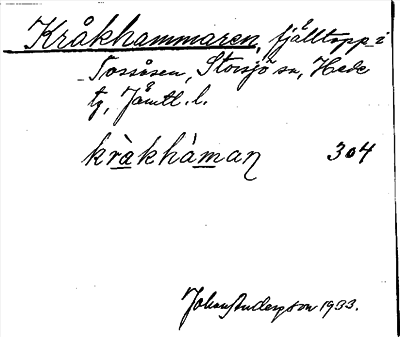 Kråkhammaren, fjälltopp i
Tossåsen, Storsjö sn, Hede
tg, Jämtl. l.
kràkhàman 304
Johan Anderzson 1933.